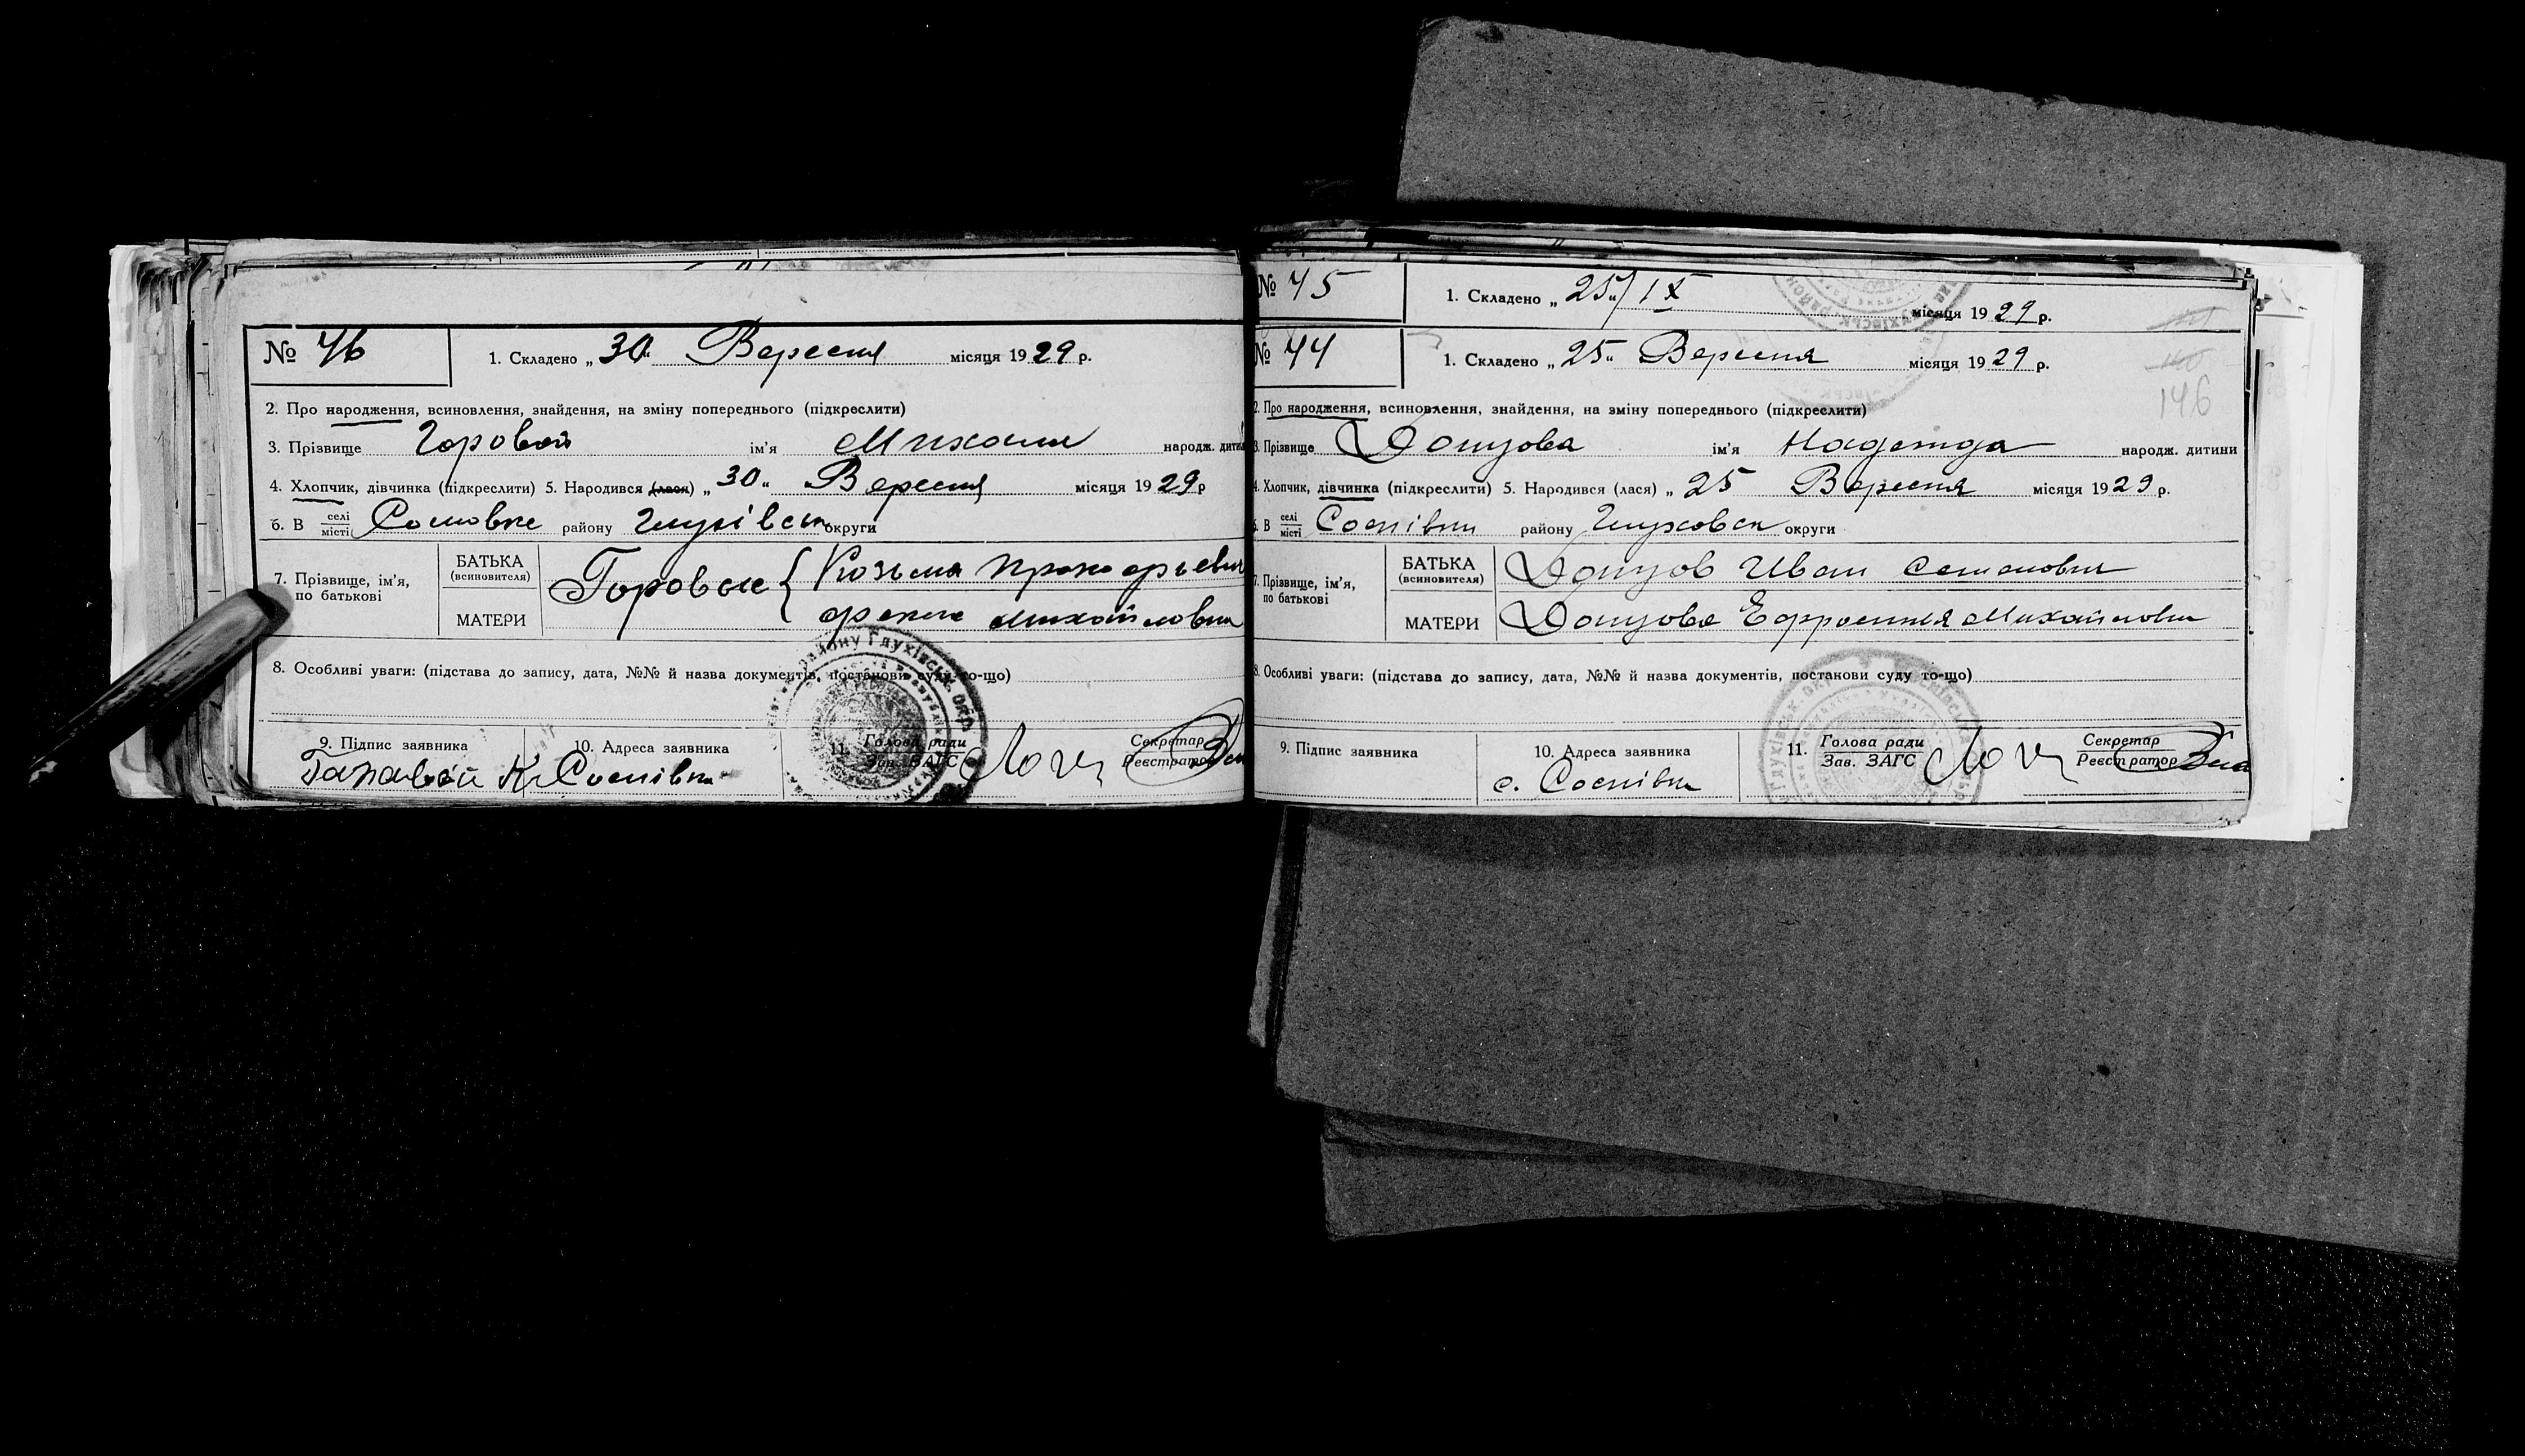 № 46 1. Складено „ 30 “ Вересня місяця 1929 р.
2. Про народження, всиновлення, знайдення, на зміну попереднього (підкреслити)
3. Прізвище Горовой ім'я Михаил народж. дитини
4. Хлопчик, дівчинка (підкреслити) 5. Народився (лася) „ 30 “ Вересня місяця 1929 р
6. В селі місті району Глухівськ округи
7. Прізвище, ім'я, по батькові
БАТЬКА (всиновителя) Козьма
Горовые {
МАТЕРИ Михайловна
8. Особливі уваги: (підстава до запису, дата, №№ й назва документів, постанови суду то-що)
9. Підпис заявника 10. Адреса заявника 11. Голова ради Зав. ЗАГС Секретар Реєстратор
К. Соснівка
№ 45 1. Складено „ 25 “/ IX місяця 1929 р.
№ 44 1. Складено „ 25 “ Вересня місяця 1929 р.
146
2. Про народження, всиновлення, знайдення, на зміну попереднього (підкреслити)
3. Прізвище Донцова ім'я Надежда народж. дитини
4. Хлопчик, дівчинка (підкреслити) 5. Народився (лася) „ 25 Вересня місяця 1929 р.
6. В селі місті Соснівки району Глуховск округи
7. Прізвище, ім'я, по батькові
БАТЬКА (всиновителя) Донцов Иван
МАТЕРИ Донцова Ефросиния Михайловна
8. Особливі уваги: (підстава до запису, дата, №№ й назва документів, постанови суду то-що)
9. Підпис заявника 10. Адреса заявника 11. Голова ради Зав. ЗАГС Секретар Реєстратор
с. Соснівка